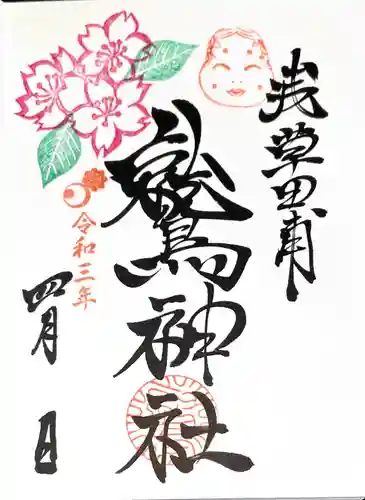 浅草田甫
鷲神社
令和三年
四月 日